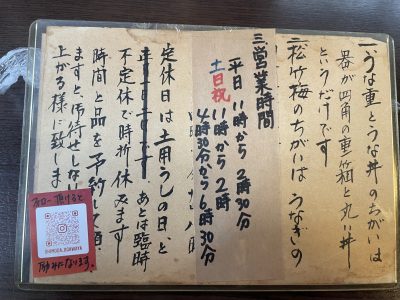 一、うな重とうな丼のちがいは
器が四角の重箱と丸い丼
というだけです
二、松竹梅のちがいは うなぎの
三、営業時間
平日 11時から 2時30分
土日祝 11時から 2時
4時30分から 6時30分
定休日は土用うしの日、と
あとは臨時
不定休で時折休みます
時間と品を予約して頂
ますと、お待せしない
上がる様に致しま
フォロー頂けると
SHIMODA.OGAWAYA
励みになります。